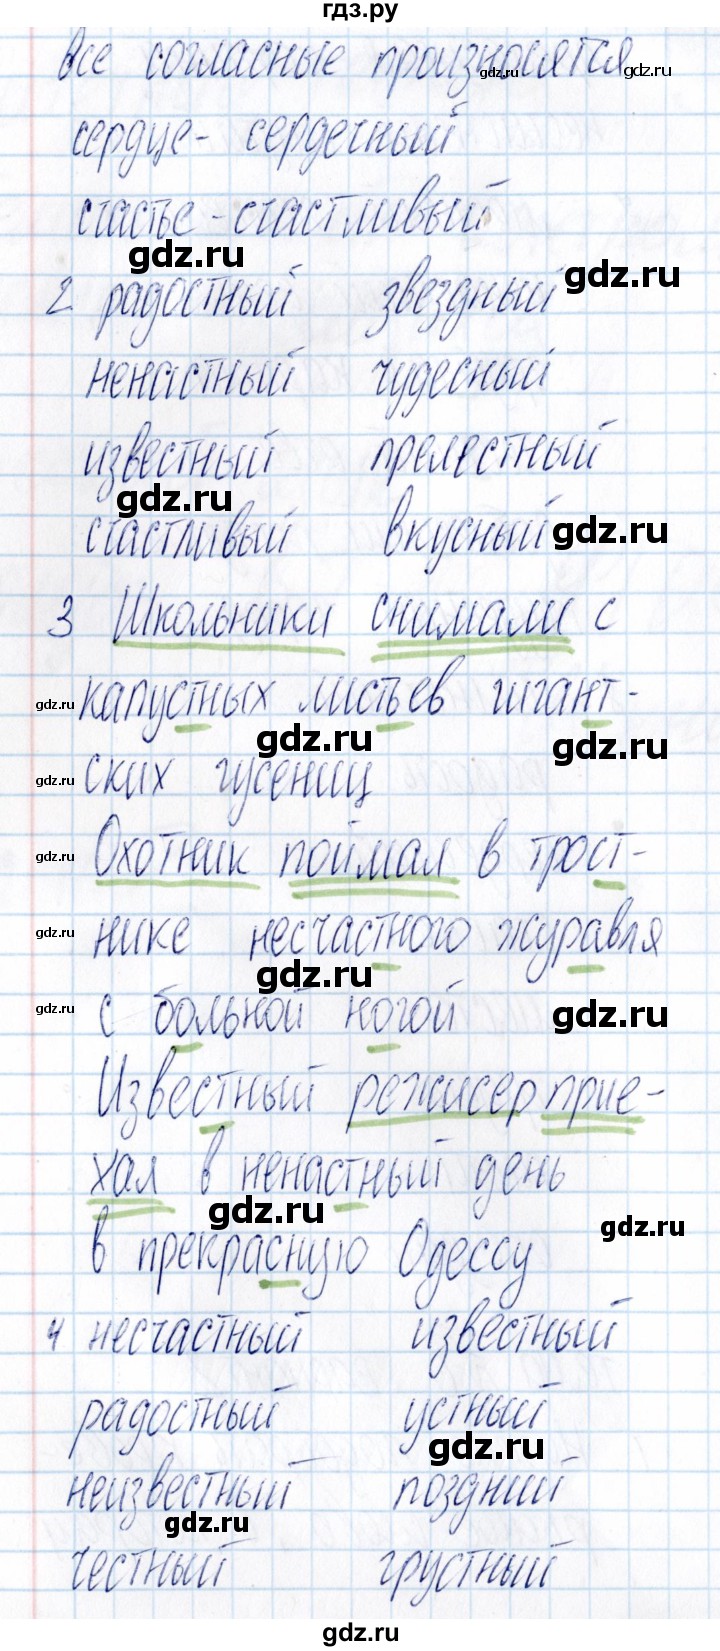 гдз.ру
все согласные произносятся
gdz.ru gdz.ru
сердце - сердечный
счастье - счастливый
gdz.ru
gdz.ru
2 радостный звездный
ненастный чудесный
известный прелестный
gdz.ru
счастливый вкусный
gdz.ru
3 Школьники снимали с
gdz.ru
капустных листьев гигант-
gdz.ru
gdz.ru
gdz.ru
ских гусениц
gdz.ru
Охотник поймал в трост-
gdz.ru
нике несчастного журавля
gdz.ru
gdz.ru
с больной ногой
gdz.ru
Известный режисер прие-
хал в ненастный день
gdz.ru
gdz.ru
в прекрасную Одессу
4 несчастный известный
радостный устный
gdz.ru
неизвестный поздний
gdz.ru
честный грустный
gdz.ru